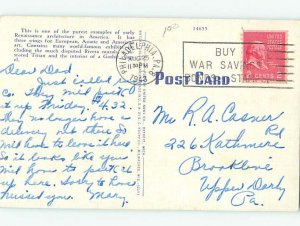 This is one of the purest examples of early
Renaissance architecture in America. It has
three wings for European, Asiatic and American
art. Contains many world-famous exhibits
cluding the much disputed Rivera murals
nowned Titian and the interior of a Gothic
14655
PHILADELPHIA, PA.
AUG 25
11 30 PM
1942
BUY
WAR SAVINGS
BONDS STAMPS
2 CENTS 2
POST CARD
Dear Dad
Just called
Co. They will put
it up Friday. $4.32.
They no longer have a
delivery out there so
will have to leave it here
So it looks like you
will have to pick it
up here. Sorry to have
missed you. Mary.
Mr. R. A. Casner
Rd
226 Kathmere
Brookline
Upper Darby
Pa.